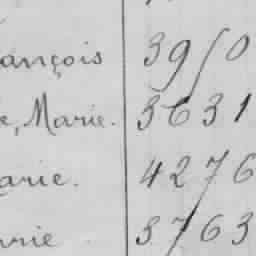 ançois 3950
e, Marie. 3631
arie. 4276
rie 3763